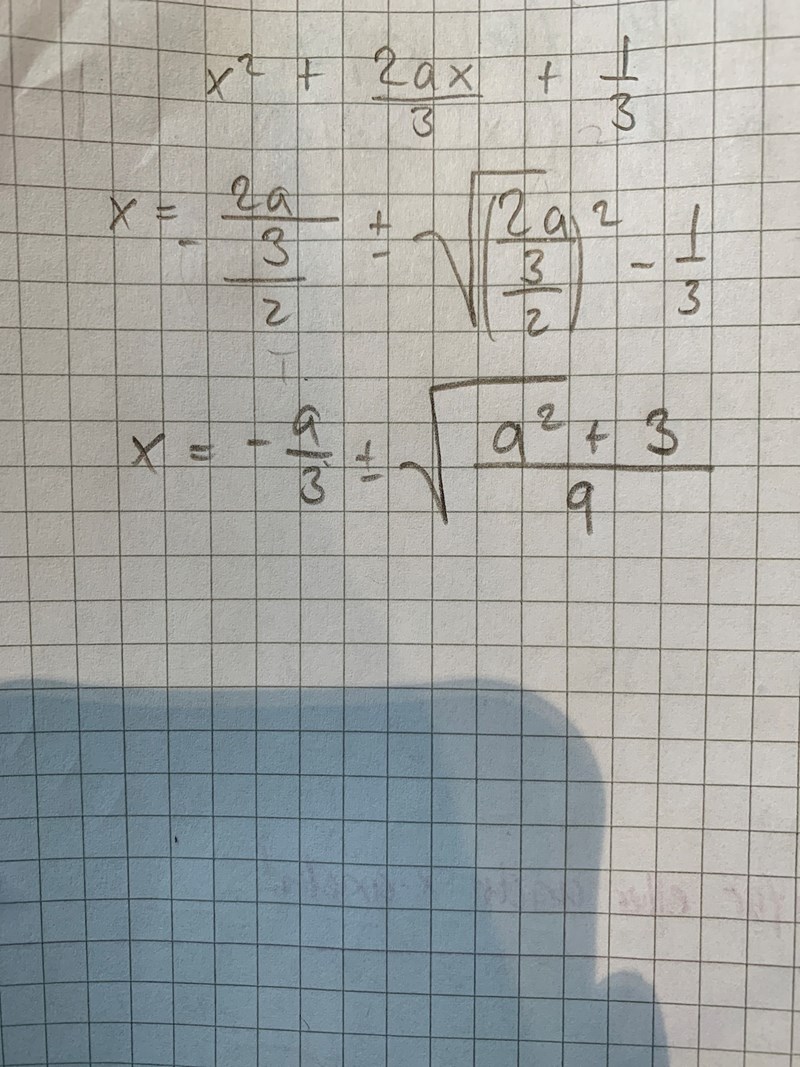 x² + 2ax/3 + 1/3
x = - 2a/3/2 ± √(2a/3/2)² - 1/3
x = - a/3 ± √a² + 3/9